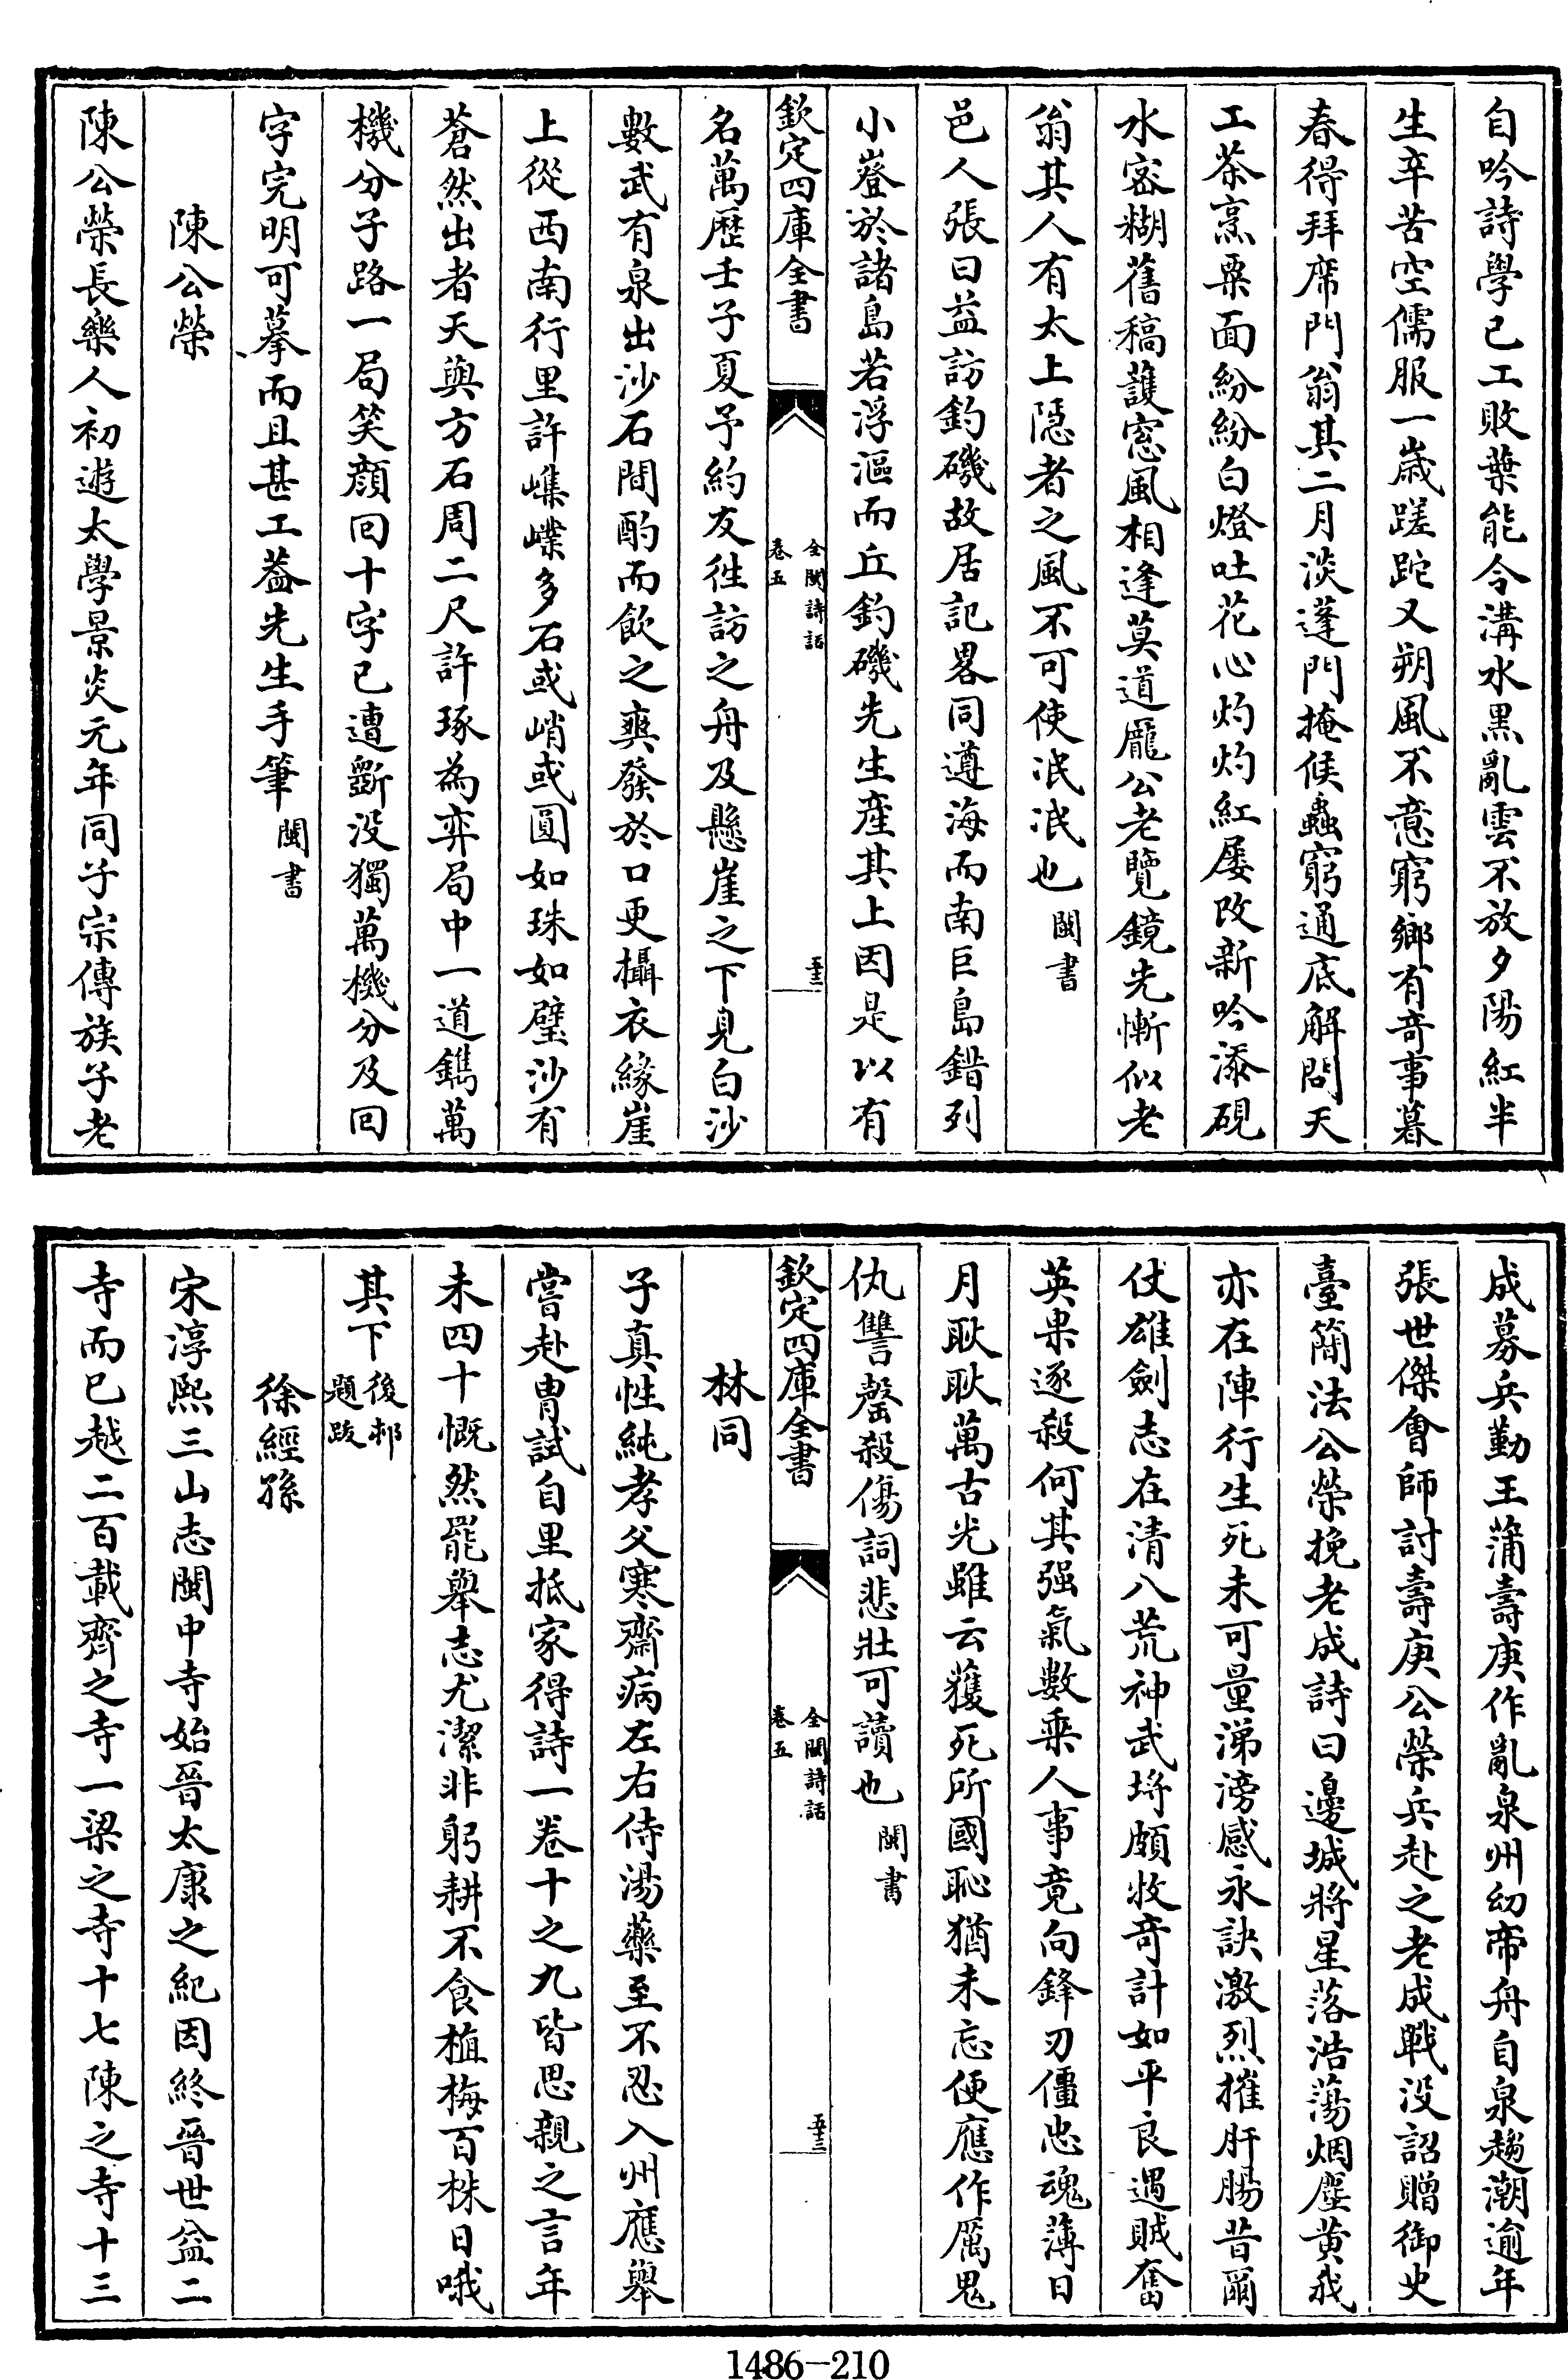 自吟詩學已工敗葉能令溝水黒亂雲不放夕陽紅半
生辛苦空儒服一嵗蹉跎又朔風不意窮鄉有竒事暮
春得拜席門翁其二月淡蓬門掩候蟲窮通底解問天
工茶烹粟面紛紛白燈吐花心灼灼紅屡改新吟添硯
水宻糊舊稿䕶窓風相逢莫道龎公老覽鏡先慚似老
翁其人有太上隱者之風不可使泯泯也閩書
邑人張日益訪釣磯故居記畧同遵海而南巨島錯列
小嶝於諸島若浮漚而丘釣磯先生産其上因是以有
欽定四庫全書
全閩詩話
卷五
五十二
名萬歴壬子夏予約友徃訪之舟及懸崖之下見白沙
數武有泉出沙石間酌而飲之爽發於口更攝衣緣崖
上從西南行里許㠎嶫多石或峭或圓如珠如璧沙有
蒼然出者天與方石周二尺許琢為弈局中一道鐫萬
機分子路一局笑顔回十字已遭斵没獨萬機分及回
字完明可摹而且甚工葢先生手筆閩書
陳公榮
陳公榮長樂人初遊太學景炎元年同子宗傳族子老
成募兵勤王蒲壽庚作亂泉州幼帝舟自泉趨潮逾年
張世傑會師討壽庚公榮兵赴之老成戰没詔贈御史
臺簡法公榮挽老成詩曰邊城將星落浩蕩烟塵黄我
亦在陣行生死未可量涕滂感永訣激烈摧肝腸昔爾
仗雄劍志在清八荒神武埒頗牧竒計如平良遇賊奮
英果逐殺何其强氣數乘人事竟向鋒刃僵忠魂薄日
月耿耿萬古光雖云獲死所國恥猶未忘便應作厲鬼
仇讐罄殺傷詞悲壯可讀也閩書
欽定四庫全書
全閩詩話
卷五
五十三
林同
子真性純孝父寒齋病左右侍湯藥至不忍入州應舉
嘗赴冑試自里抵家得詩一卷十之九皆思親之言年
未四十慨然罷舉志尤潔非躬耕不食植梅百株日哦
其下後邨題跋
徐經孫
宋淳熙三山志閩中寺始晉太康之紀因終晉世益二
寺而已越二百載齊之寺一梁之寺十七陳之寺十三
1486-210